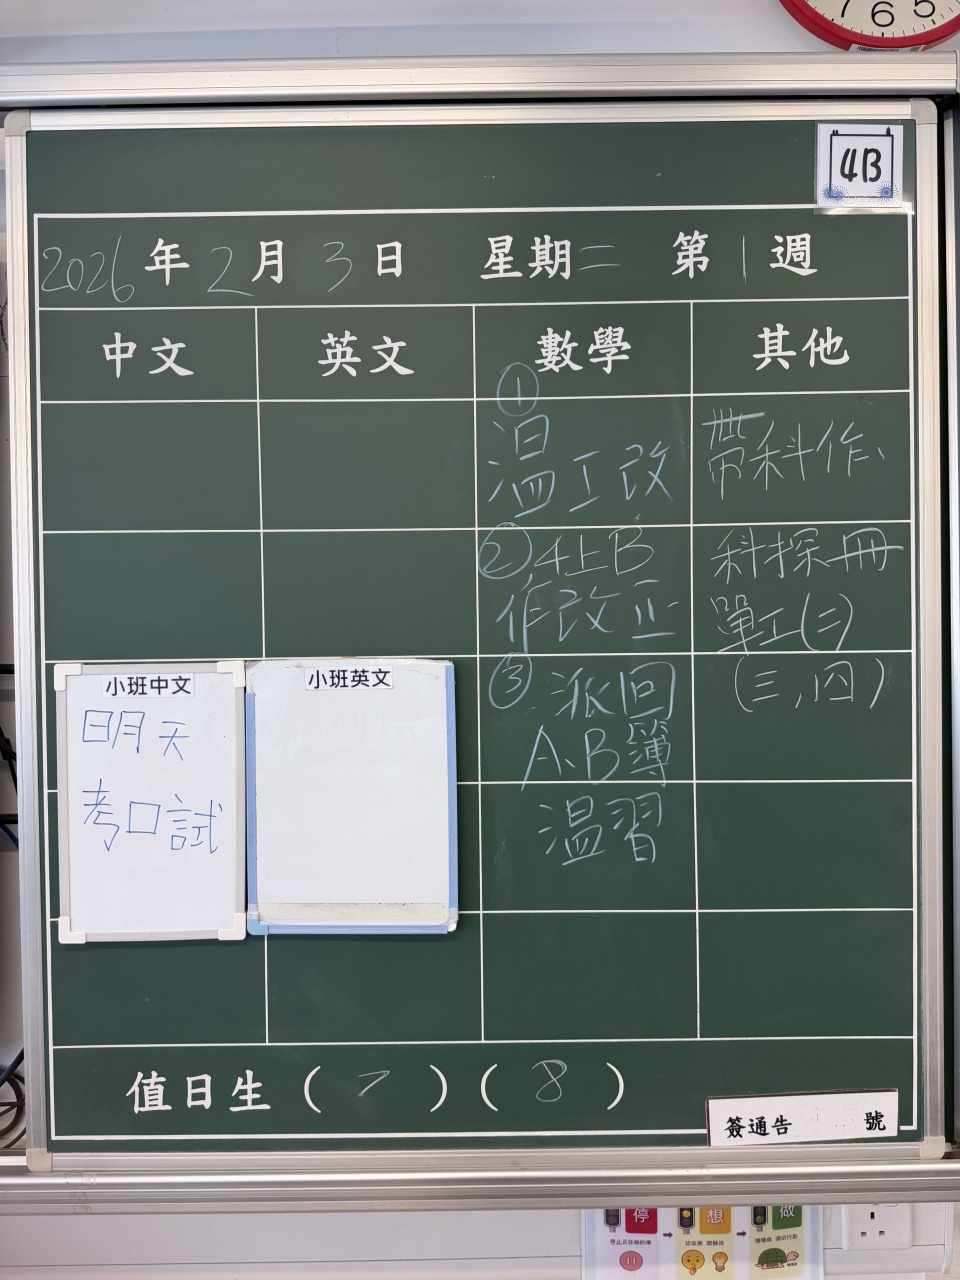 7 6 5
4B
2026年2月3日 星期二 第1週
中文 英文 數學 其他
①
温工改
②4上B
作改正
③派回
A、B簿
温習
帶科作、
科探冊
單工(二)
(三,四)
小班中文
明天
考口試
小班英文
值日生(7)(8)
簽通告 號
停 想 做